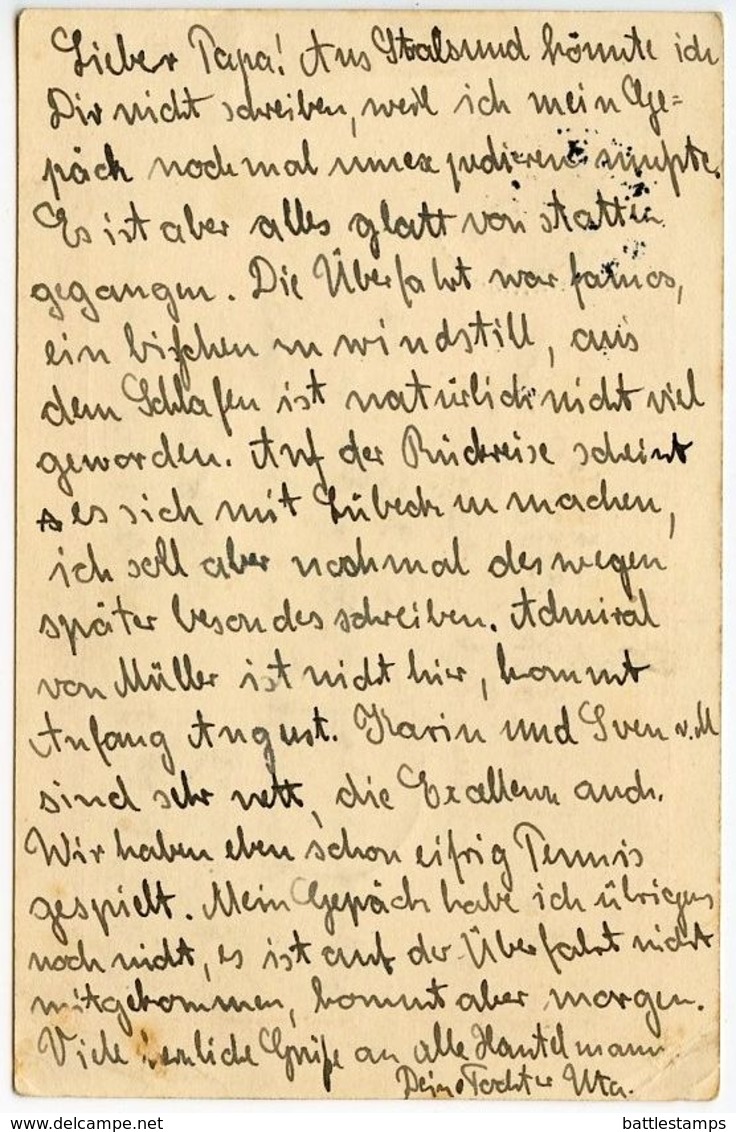 Lieber Papa! Aus Stralsund könnte ich
Dir nicht schreiben, weil ich mein Ge=
päck nochmal umexpedieren mußte.
Es ist aber alles glatt von statten
gegangen. Die Überfahrt war famos,
ein bißchen zu windstill, aus
dem Schlafen ist natürlich nicht viel
geworden. Auf der Rückreise scheint
es sich mit Lübeck zu machen,
ich soll aber nochmal deswegen
später besondes schreiben. Admiral
von Müller ist nicht hier, kommt
Anfang August. Karin und Sven v. M
sind sehr nett, die Exellenz auch.
Wir haben eben schon eifrig Tennis
gespielt. Mein Gepäck habe ich übrigens
noch nicht, es ist auf der Überfahrt nicht
mitgekommen, kommt aber morgen.
Viele herzliche Grüße an alle Hantelmann
Deine Tochter Uta.
battlestamps